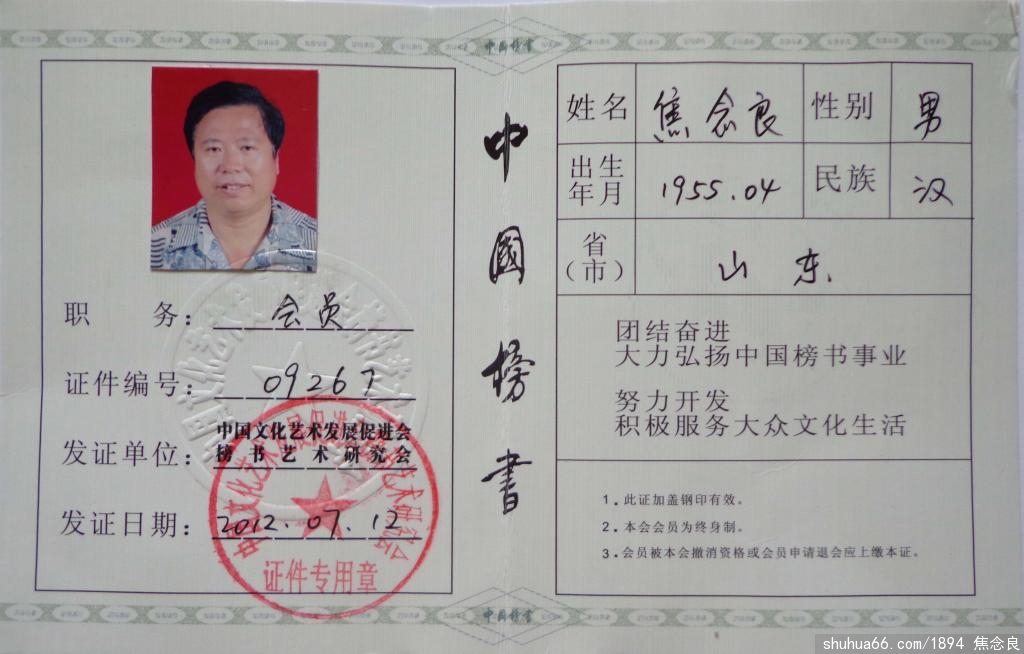 中国榜书
职 务：会员
证件编号：09267
发证单位：中国文化艺术发展促进会
榜书艺术研究会
发证日期：2012.07.12
证件专用章
中國榜書
姓名 焦念良 性别 男
出生年月 1955.04 民族 汉
省（市） 山东
团结奋进
大力弘扬中国榜书事业
努力开发
积极服务大众文化生活
1．此证加盖钢印有效。
2．本会会员为终身制。
3．会员被本会撤消资格或会员申请退会应上缴本证。
中国榜书
shuhua66.com/1894 焦念良